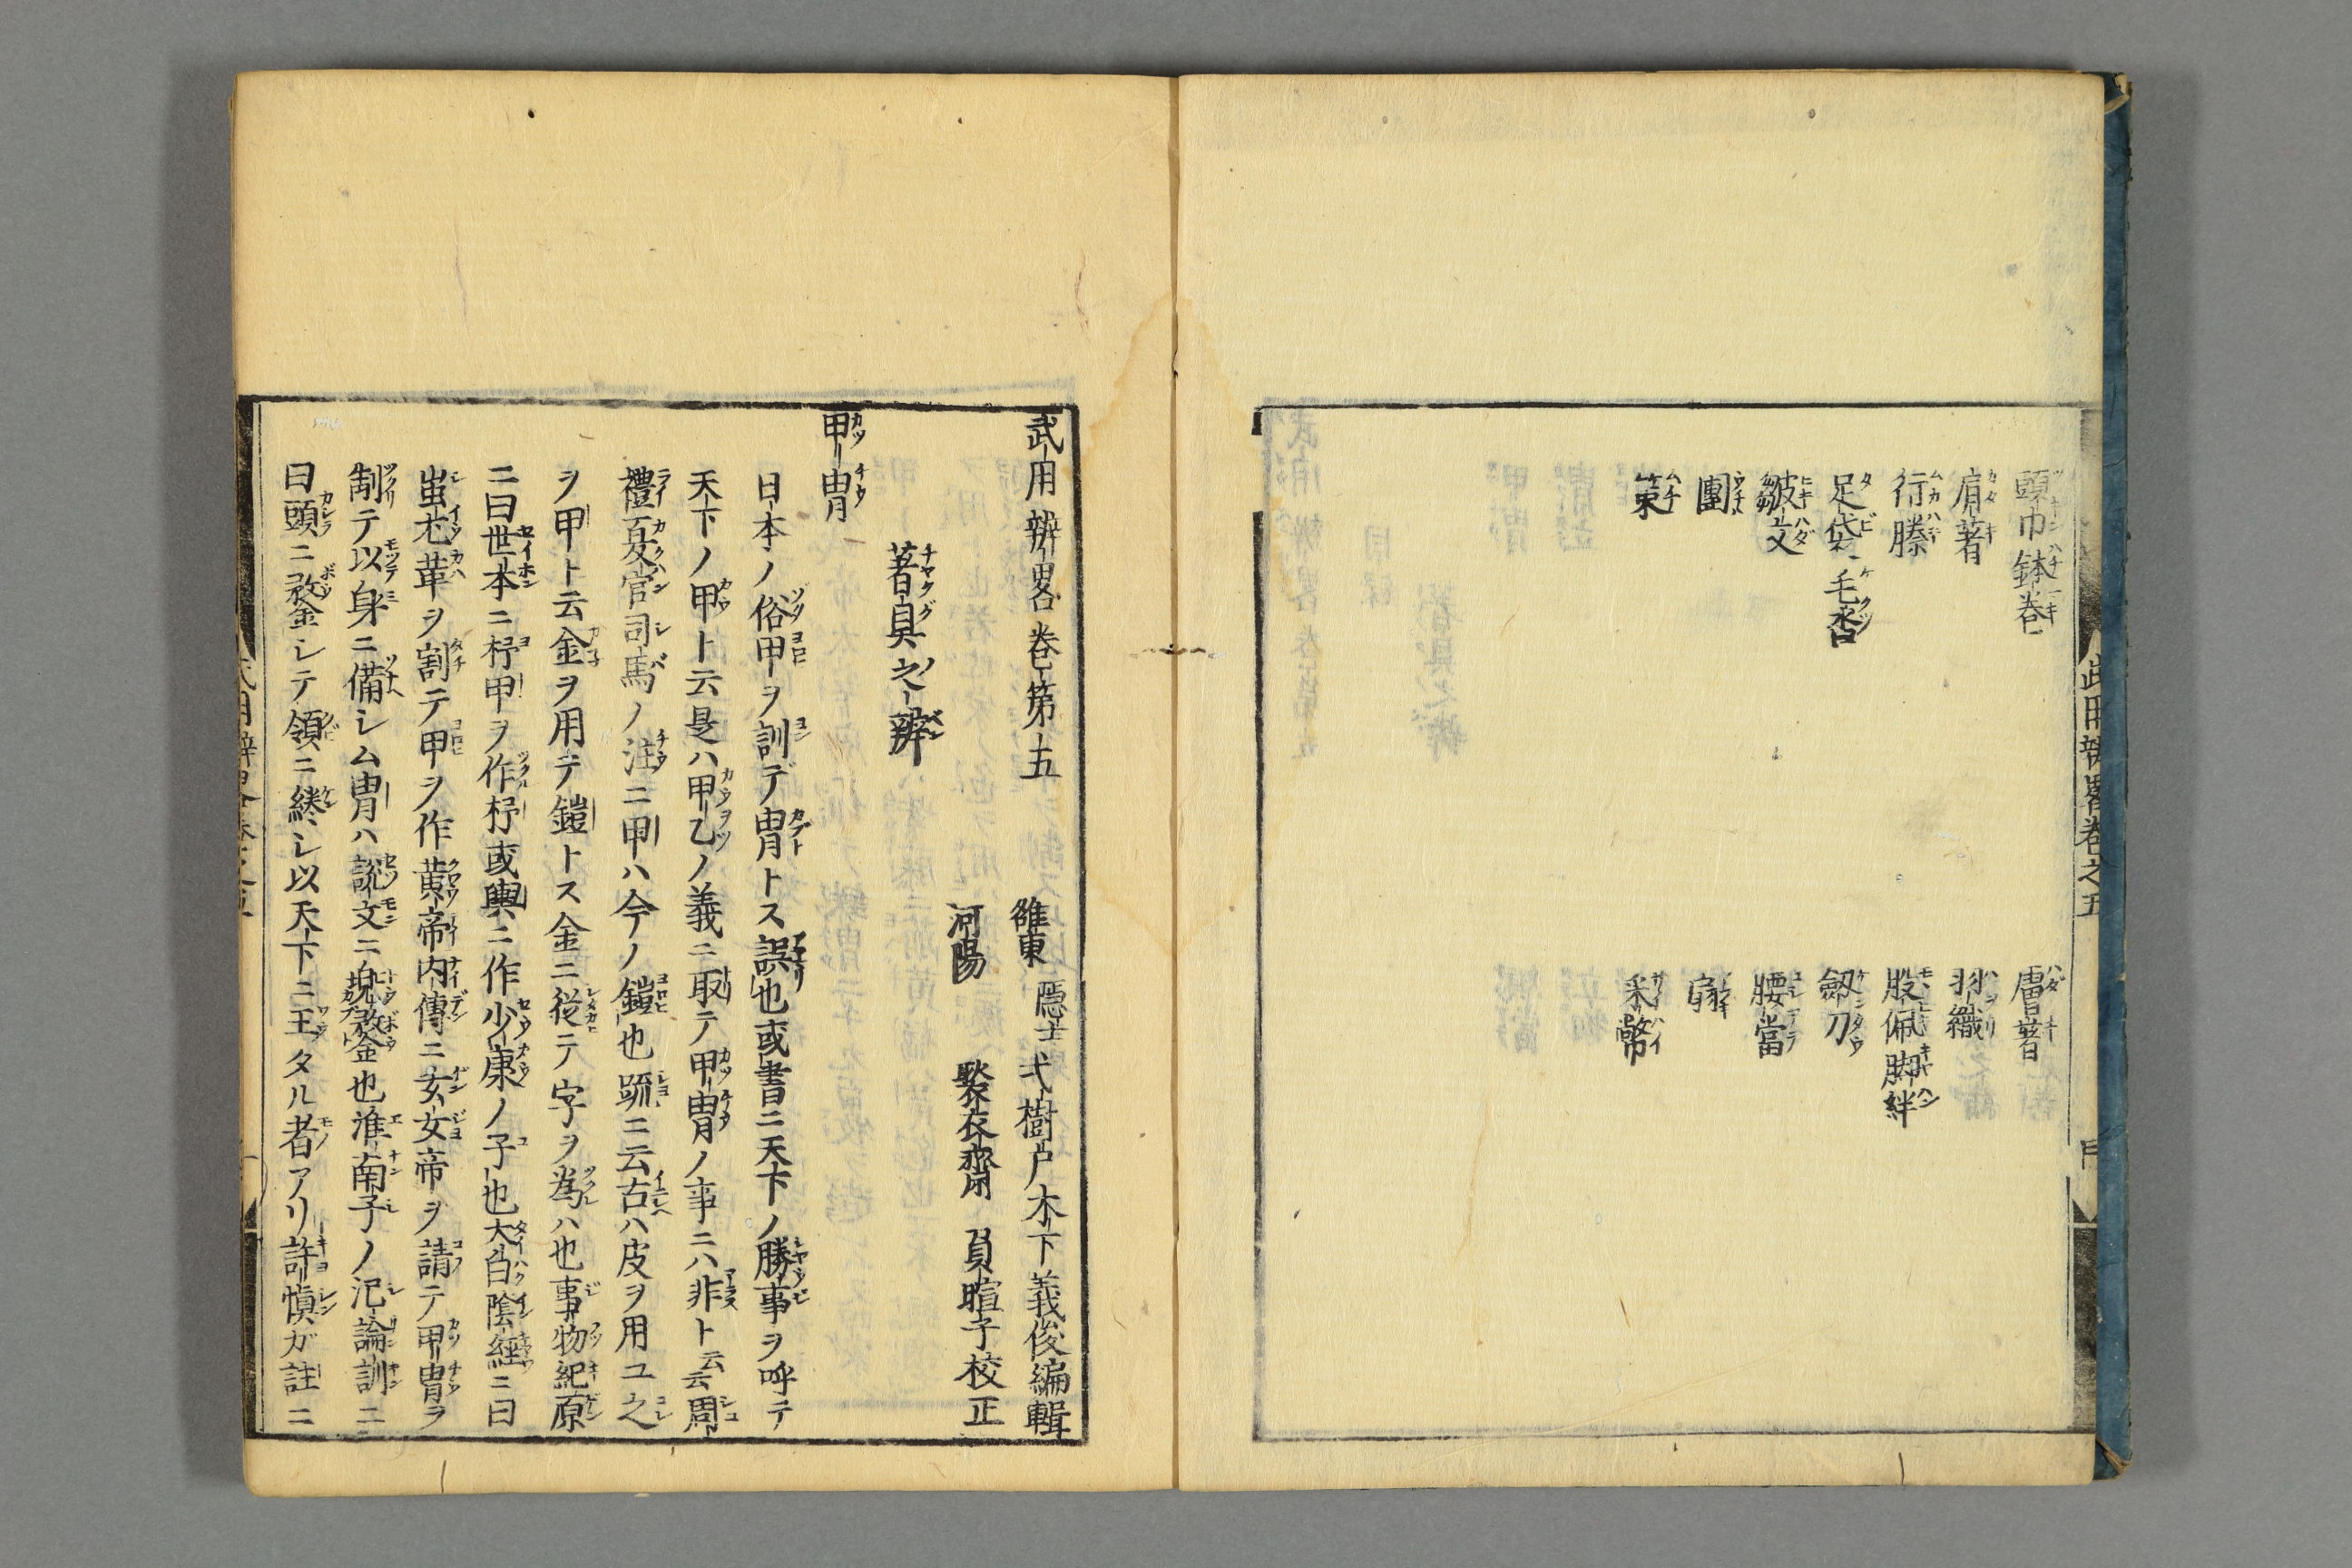 頭巾鉢卷
膚著
肩著
羽織
行縢
股佩脚絆
足袋 毛沓
劔刀
皺文
腰當
團
扇
策
采幣
武用辨畧卷之五
武用辨畧卷第五
雒東 隱士 弌樹戸木下義俊編輯
河陽 褧衣齋 貟暄子校正
著具之辨
甲冑
日本ノ俗甲ヲ訓デ冑トス誤也或書ニ天下ノ勝事ヲ呼テ
天下ノ甲ト云是ハ甲乙ノ義ニ取テ甲冑ノ事ニハ非ト云云周
禮夏官司馬ノ注ニ甲ハ今ノ鎧也䟽ニ云古ハ皮ヲ用ユ之
ヲ甲ト云金ヲ用テ鎧トス金ニ從テ字ヲ爲ハ也事物紀原
ニ曰世本ニ杼甲ヲ作杼或輿ニ作少康ノ子也大白陰經ニ曰
蚩尤革ヲ割テ甲ヲ作黄帝内傳ニ玄女帝ヲ請テ甲冑ヲ
制テ以身ニ備シム冑ハ説文ニ兜鍪也淮南子ノ氾論訓ニ
曰頭ニ鍪シテ領ニ綣シ以天下ニ王タル者アリ許愼ガ註ニ